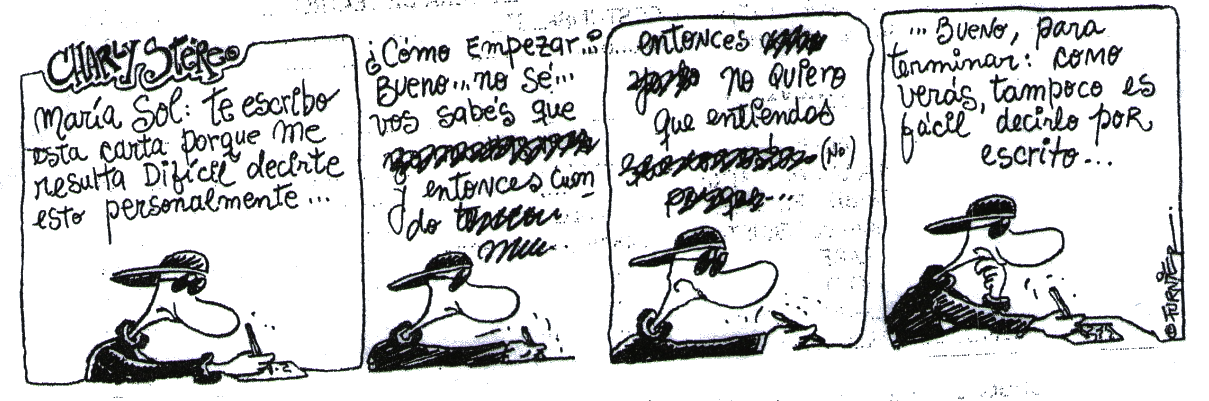 CHARLY Stéreo
María Sol: te escribo
esta carta porque me
resulta Difícil decirte
esto personalmente...
¿Cómo Empezar..?
Bueno... no sé...
vos sabés que
y entonces cuan
do t
entonces
no quiero
que entiendas
(No)
... Bueno, para
terminar: como
verás, tampoco es
fácil decirlo poR
escrito...
© FURNIER